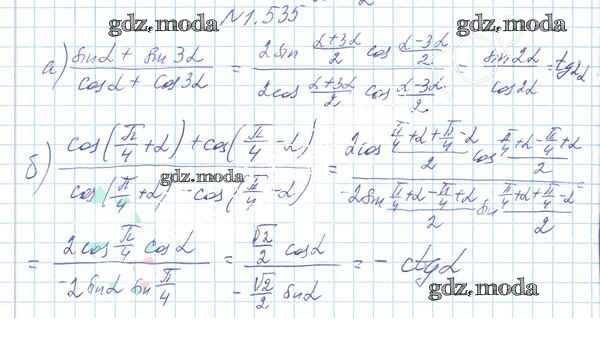 gdz.moda
№1.535
gdz.moda
а) (sinα + sin3α)/(cosα + cos3α) = (2sin (α+3α)/2 cos (α-3α)/2)/(2cos (α+3α)/2 cos (α-3α)/2) = sin2α/cos2α = tg2α
б) (cos(π/4+α)+cos(π/4-α))/(cos(π/4+α)-cos(π/4-α)) = (2cos (π/4+α+π/4-α)/2 cos (π/4+α-π/4+α)/2)/(-2sin (π/4+α-π/4+α)/2 sin (π/4+α+π/4-α)/2)
gdz.moda
= (2cos π/4 cosα)/(-2 sinα sin π/4) = (√2/2 cosα)/(-√2/2 sinα) = - ctgα
gdz.moda